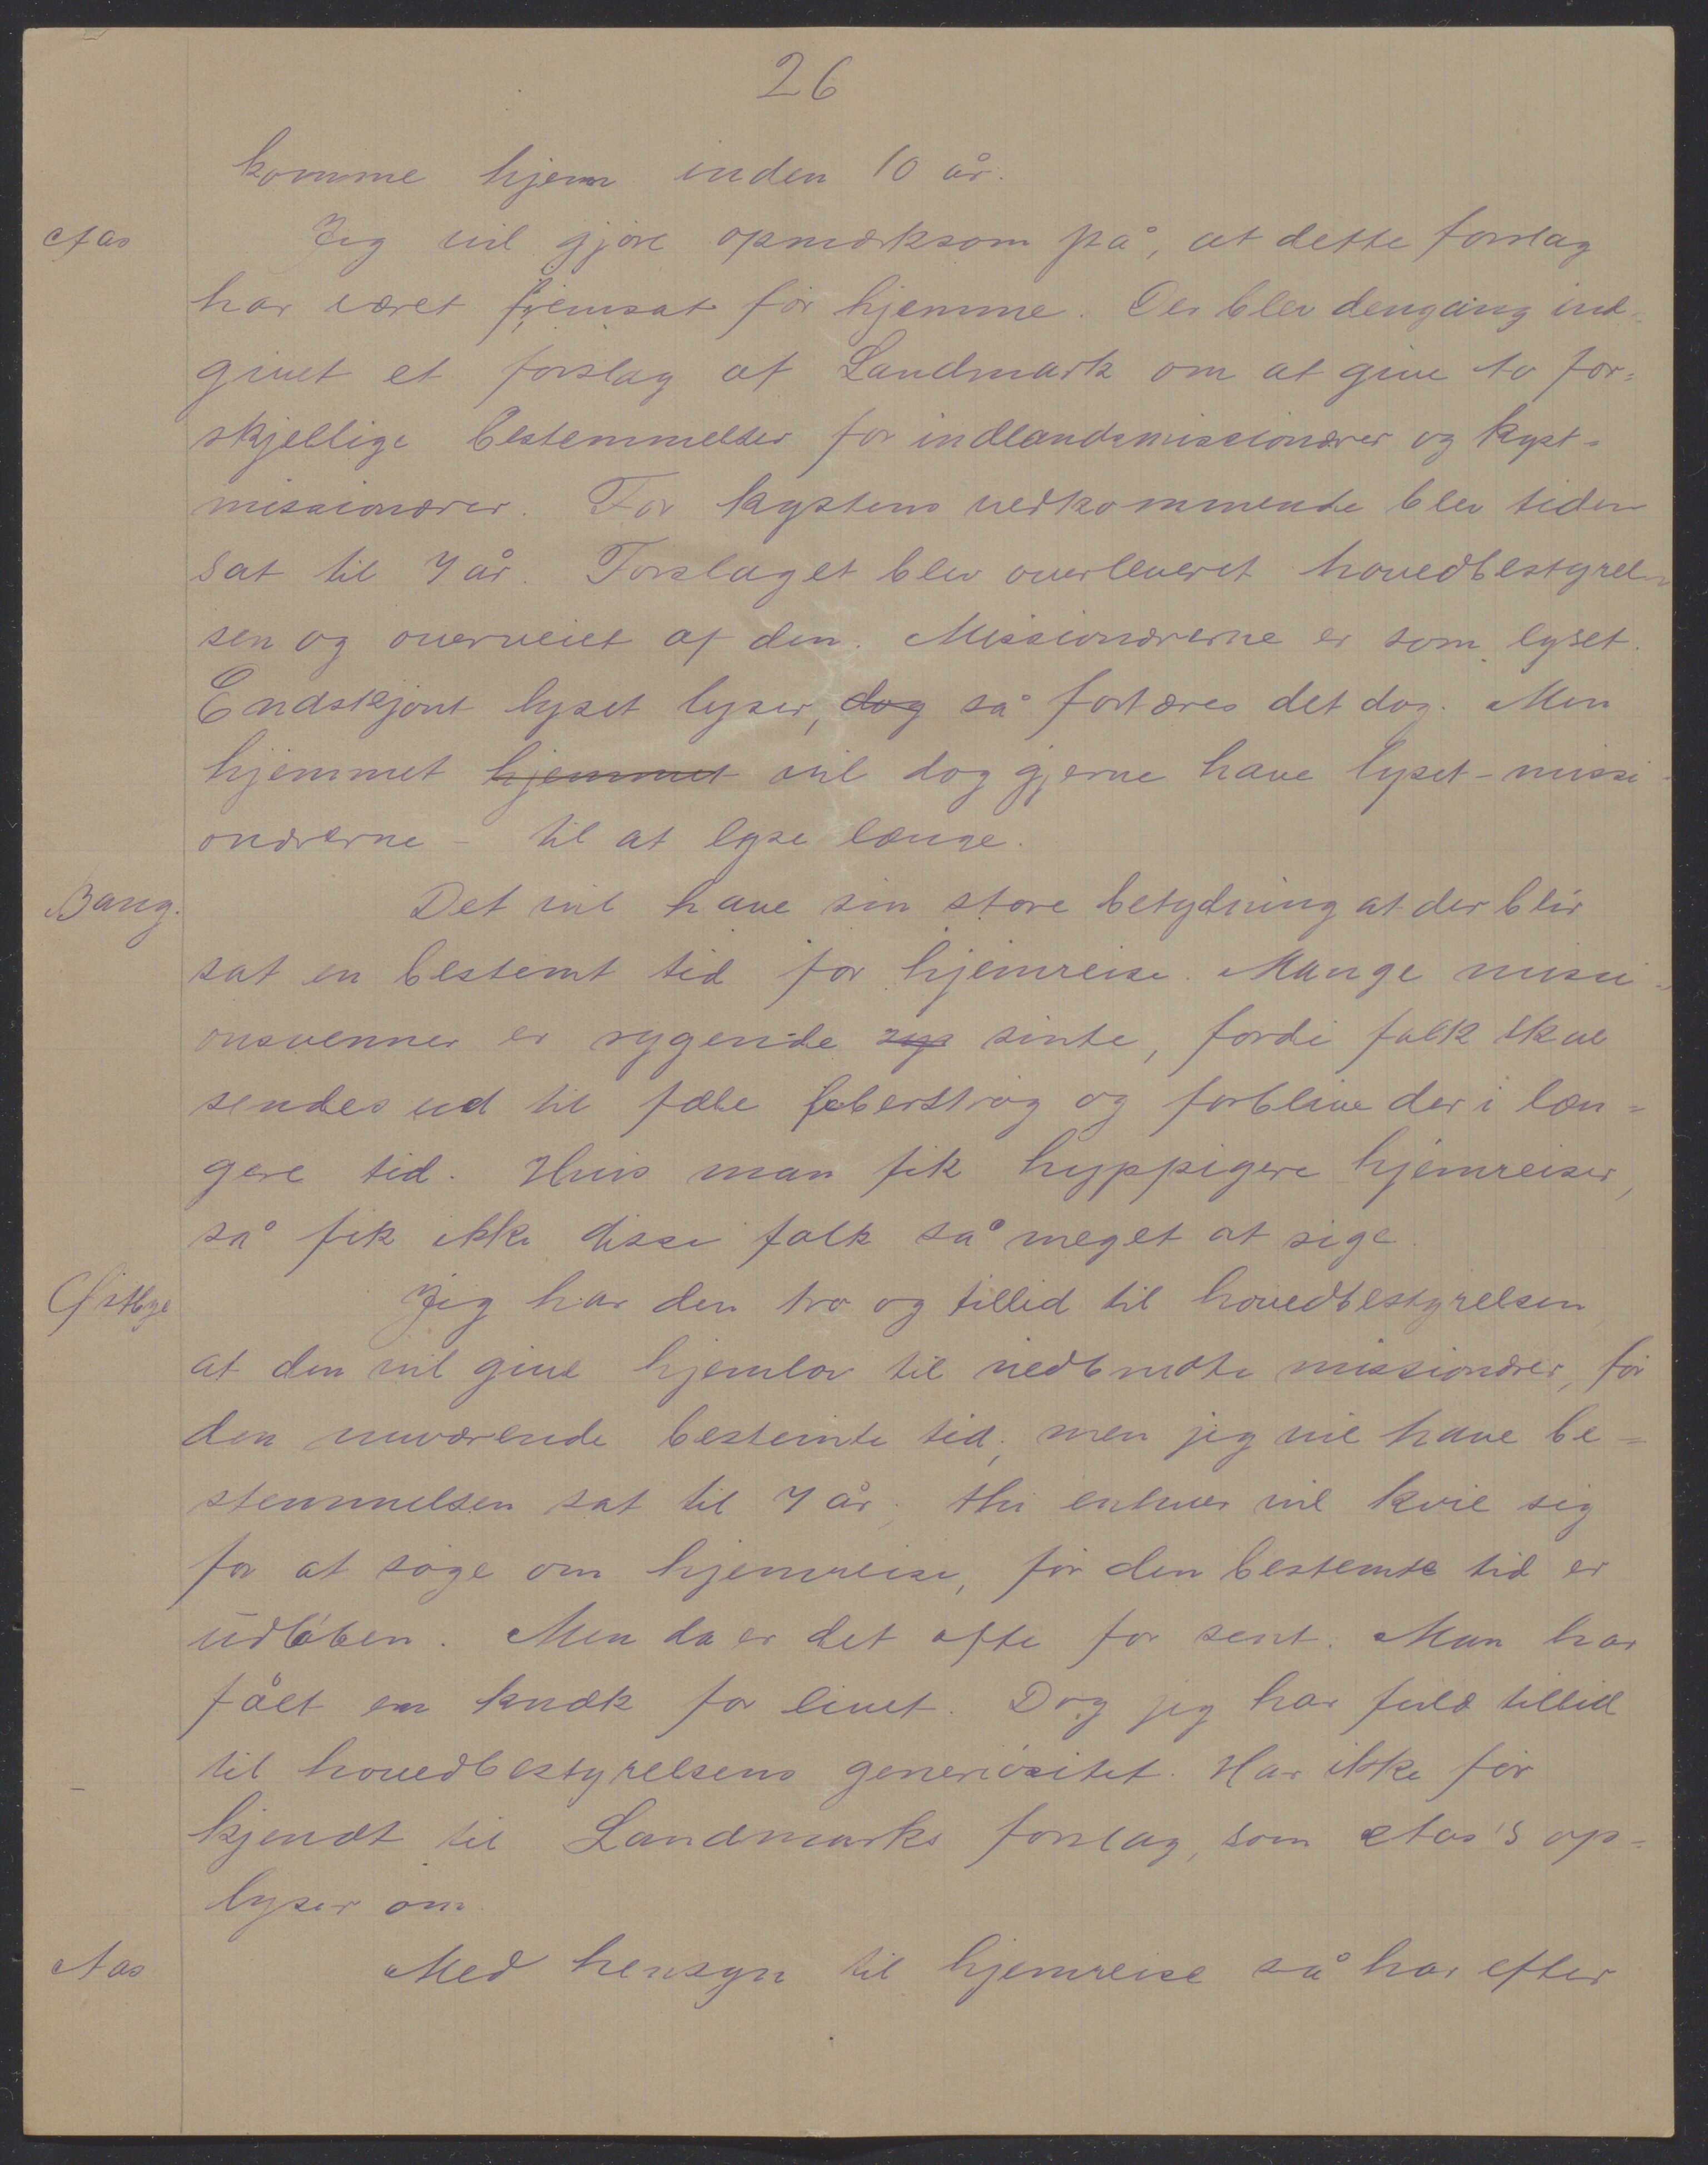 26
komme hjem inden 10 år.
Aas Jeg vil gjøre opmærksom på, at dette forslag
har været fremsat før hjemme. Der blev dengang ind-
givet et forslag af Landmark om at give to for=
skjellige bestemmelser for indlandsmissionærer og kyst-
missionærer. For kystens vedkommende blev tiden
sat til 7 år. Forslaget blev overleveret hovedbestyrel-
sen og overveiet af den. Missionærerne er som lyset.
Endskjønt lyset lyser, dog så fortæres det dog. Men
hjemmet hjemmet vil dog gjerne have lyset - missi-
onærerne - til at lyse længe.
Bang. Det vil have sin store betydning at der blir
sat en bestemt tid for hjemreise. Mange missi-
onsvenner er rygende syn sinte, fordi folk skal
sendes ud til fæle feberstrøg og forblive der i læn=
gere tid. Hvis man fik hyppigere hjemreiser,
så fik ikke disse folk så meget at sige.
Østbye Jeg har den tro og tillid til hovedbestyrelsen,
at den vil give hjemlov til nedbrudte missionærer, før
den nuværende bestemte tid; men jeg vil have be=
stemmelsen sat til 7 år; thi enhver vil kvie sig
for at søge om hjemreise, før den bestemte tid er
udløben. Men da er det ofte for sent. Man har
fået en knæk for livet. Dog jeg har fuld tillid
til hovedbestyrelsens generiøsitet. Har ikke før
kjendt til Landmarks forslag, som Aas's op=
lyser om.
Aas Med hensyn til hjemreise så har efter